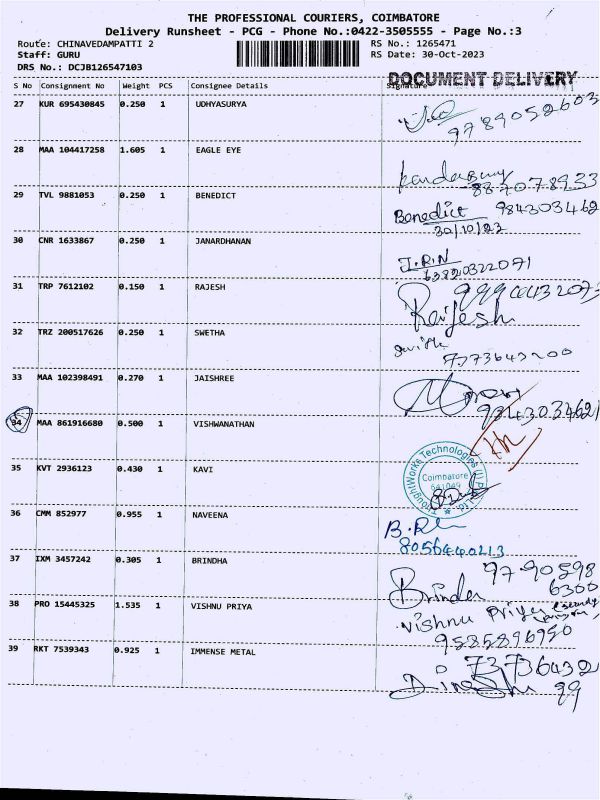 THE PROFESSIONAL COURIERS, COIMBATORE
Delivery Runsheet - PCG - Phone No.:0422-3505555 - Page No.:3
Route: CHINAVEDAMPATTI 2 RS No.: 1265471
Staff: GURU RS Date: 30-Oct-2023
DRS No.: DCJB126547103
DOCUMENT DELIVERY
S No Consignment No Weight PCS Consignee Details Signature
27 KUR 695430845 0.250 1 UDHYASURYA
9789052603
28 MAA 104417258 1.605 1 EAGLE EYE
Kandasamy
887078933
29 TVL 9881053 0.250 1 BENEDICT
Benedict 984303462
30/10/23
30 CNR 1633867 0.250 1 JANARDHANAN
J.R.N
63820322071
31 TRP 7612102 0.150 1 RAJESH
Rajesh
32 TRZ 200517626 0.250 1 SWETHA
33 MAA 102398491 0.270 1 JAISHREE
34 MAA 861916680 0.500 1 VISHWANATHAN
35 KVT 2936123 0.430 1 KAVI
ThoughtWorks Technologies (I) Pvt. Ltd.
Coimbatore
641049
36 CMM 852977 0.955 1 NAVEENA
8056440213
37 IXM 3457242 0.305 1 BRINDHA
97 90598
6300
Brinda
38 PRO 15445325 1.535 1 VISHNU PRIYA
Vishnu Priya
9585896950
39 RKT 7539343 0.925 1 IMMENSE METAL
73736432
99
Dinesh